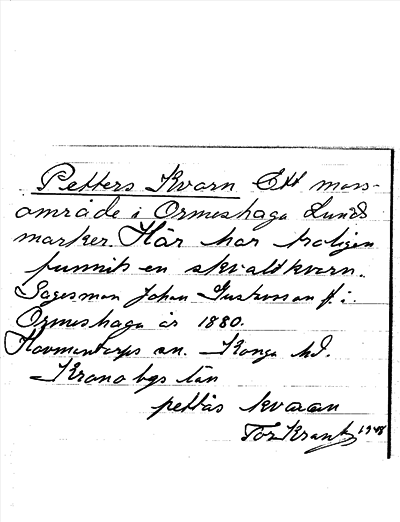 Petters Kvarn Ett moss-
område i Ormeshaga Lunds
marker. Här har troligen
funnits en skvaltkvarn.
Sagesman Johan Gustavsson f. i
Ormeshaga år 1880.
Hovmantorps sn. Konga hd.
Kronobgs län
pettås kvaan
Tor Krantz 1948